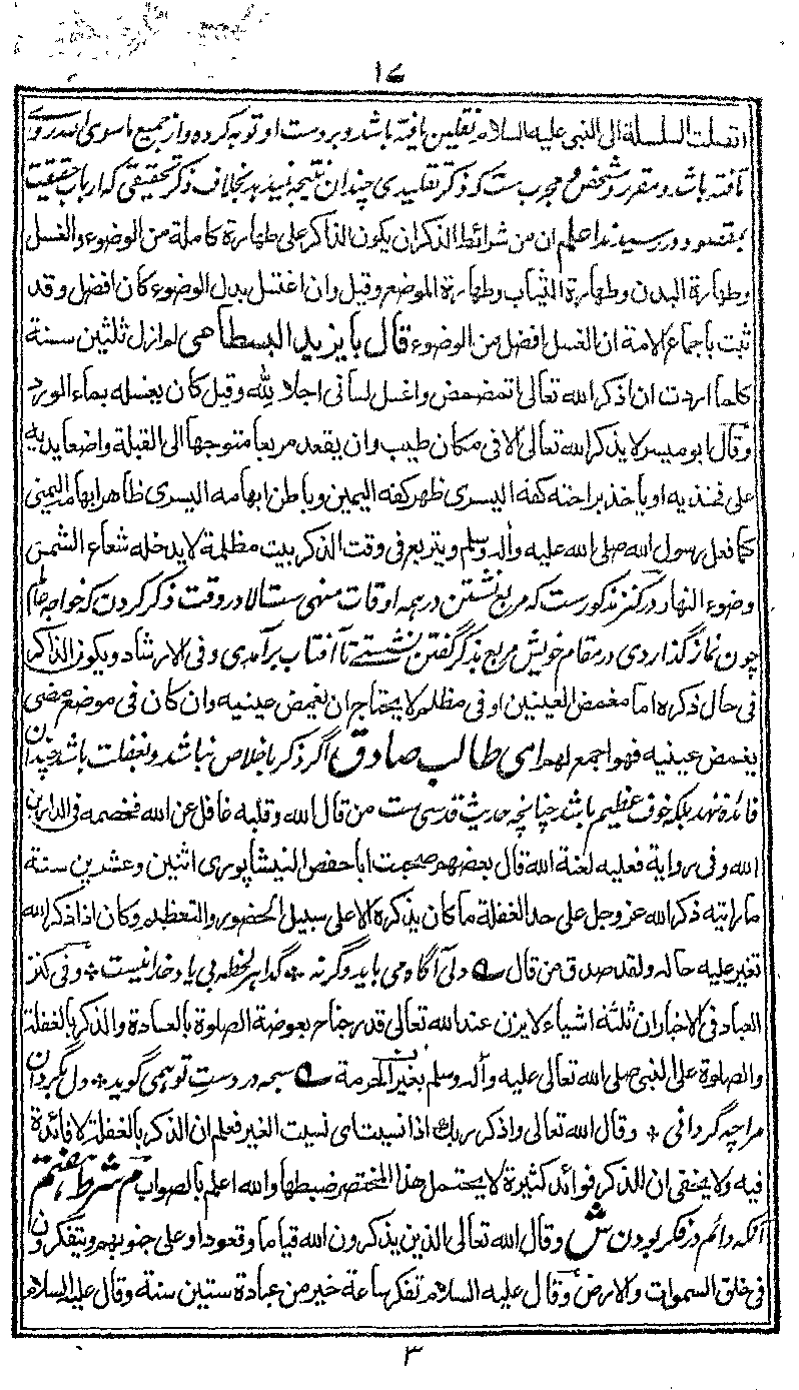 ۱۷
اتصلت السلسلة الی النبی علیه السلام تلقین یافته باشد و بر دست او توبه کرده و از جمیع ماسوی الله روی
تافته باشد و مقرر و مشخص و مجرب ست که ذکر تقلیدی چندان نتیجه ندهد بخلاف ذکر تحقیقی که ارباب حقیقت
بمقصود رسیدند اعلم ان من شرائط الذکر ان یکون الذاکر علی طهارة کاملة من الوضوء والغسل
وطهارة البدن وطهارة الثیاب وطهارة الموضع وقیل وان اغتسل بدل الوضوء کان افضل وقد
ثبت باجماع الامة ان الغسل افضل من الوضوء قال بایزید البسطامی لم ازل ثلثین سنة
کلما اردت ان اذکر الله تعالی اتمضمض واغسل لسانی اجلالا لله وقیل کان یغسله بماء الورد
وقال ابو میسر لا یذکر الله تعالی الا فی مکان طیب وان یقعد مربعا متوجها الی القبلة واضعا یدیه
علی فخذیه او یاخذ براحته کفه الیسری ظهر کفه الیمین وباطن ابهامه الیسری ظاهر ابهامه الیمنی
کما فعل رسول الله صلی الله علیه وآله وسلم ویتربع فی وقت الذکر بیت مظلمة لا یدخله شعاع الشمس
وضوء النهار در کنز مذکور ست که مربع نشستن در همه اوقات منهی ست الا در وقت ذکر کردن که خواجه عالم
چون نماز گذاردی در مقام خویش مربع بذکر گفتن نشستے تا آفتاب برآمدی وفی الارشاد ویکون الذاکر
فی حال ذکره اما مغمض العینین او فی مظلم لا یحتاج ان یغمض عینیه وان کان فی موضع مضی
یغمض عینیه فهو اجمع لهم ای طالب صادق اگر ذکر باخلاص نباشد و بغفلت باشد چندان
فائده ندهد بلکه خوف عظیم باشد چنانچه حدیث قدسی ست من قال الله وقلبه غافل عن الله فخصمه فی الدارین
الله وفی روایة فعلیه لعنة الله قال بعضهم صحبت ابا حفص النیشاپوری اثنین وعشرین سنة
ما رایته ذکر الله عز وجل علی حد الغفلة ما کان یذکره الا علی سبیل الحضور والتعظیم وکان اذا ذکر الله
تغیر علیه حاله ولقد صدق من قال دلی آگاه می باید وگرنه * گدا یک لحظه بی یاد خدا نیست * وفی کنز
العباد فی الاخبار ان ثلثة اشیاء لا یزن عند الله تعالی قدر جناح بعوضة الصلوة بالعادة والذکر بالغفلة
والصلوة علی النبی صلی الله تعالی علیه وآله وسلم بغیر الحرمة سبحه در دست تو همی گوید * دل بگردان
مرا چه گردانی * وقال الله تعالی واذکر ربک اذا نسیت ای نسیت الغیر فعلم ان الذکر بالغفلة لا فائدة
فیه ولا یخفی ان للذکر فوائد کثیرة لا یحتمل هذا المختصر ضبطها والله اعلم بالصواب م شرط هفتم
آنکه دائم در فکر بودن ش وقال الله تعالی الذین یذکرون الله قیاما وقعودا وعلی جنوبهم ویتفکرون
فی خلق السموات والارض وقال علیه السلام تفکر ساعة خیر من عبادة ستین سنة وقال علیه السلام
۳